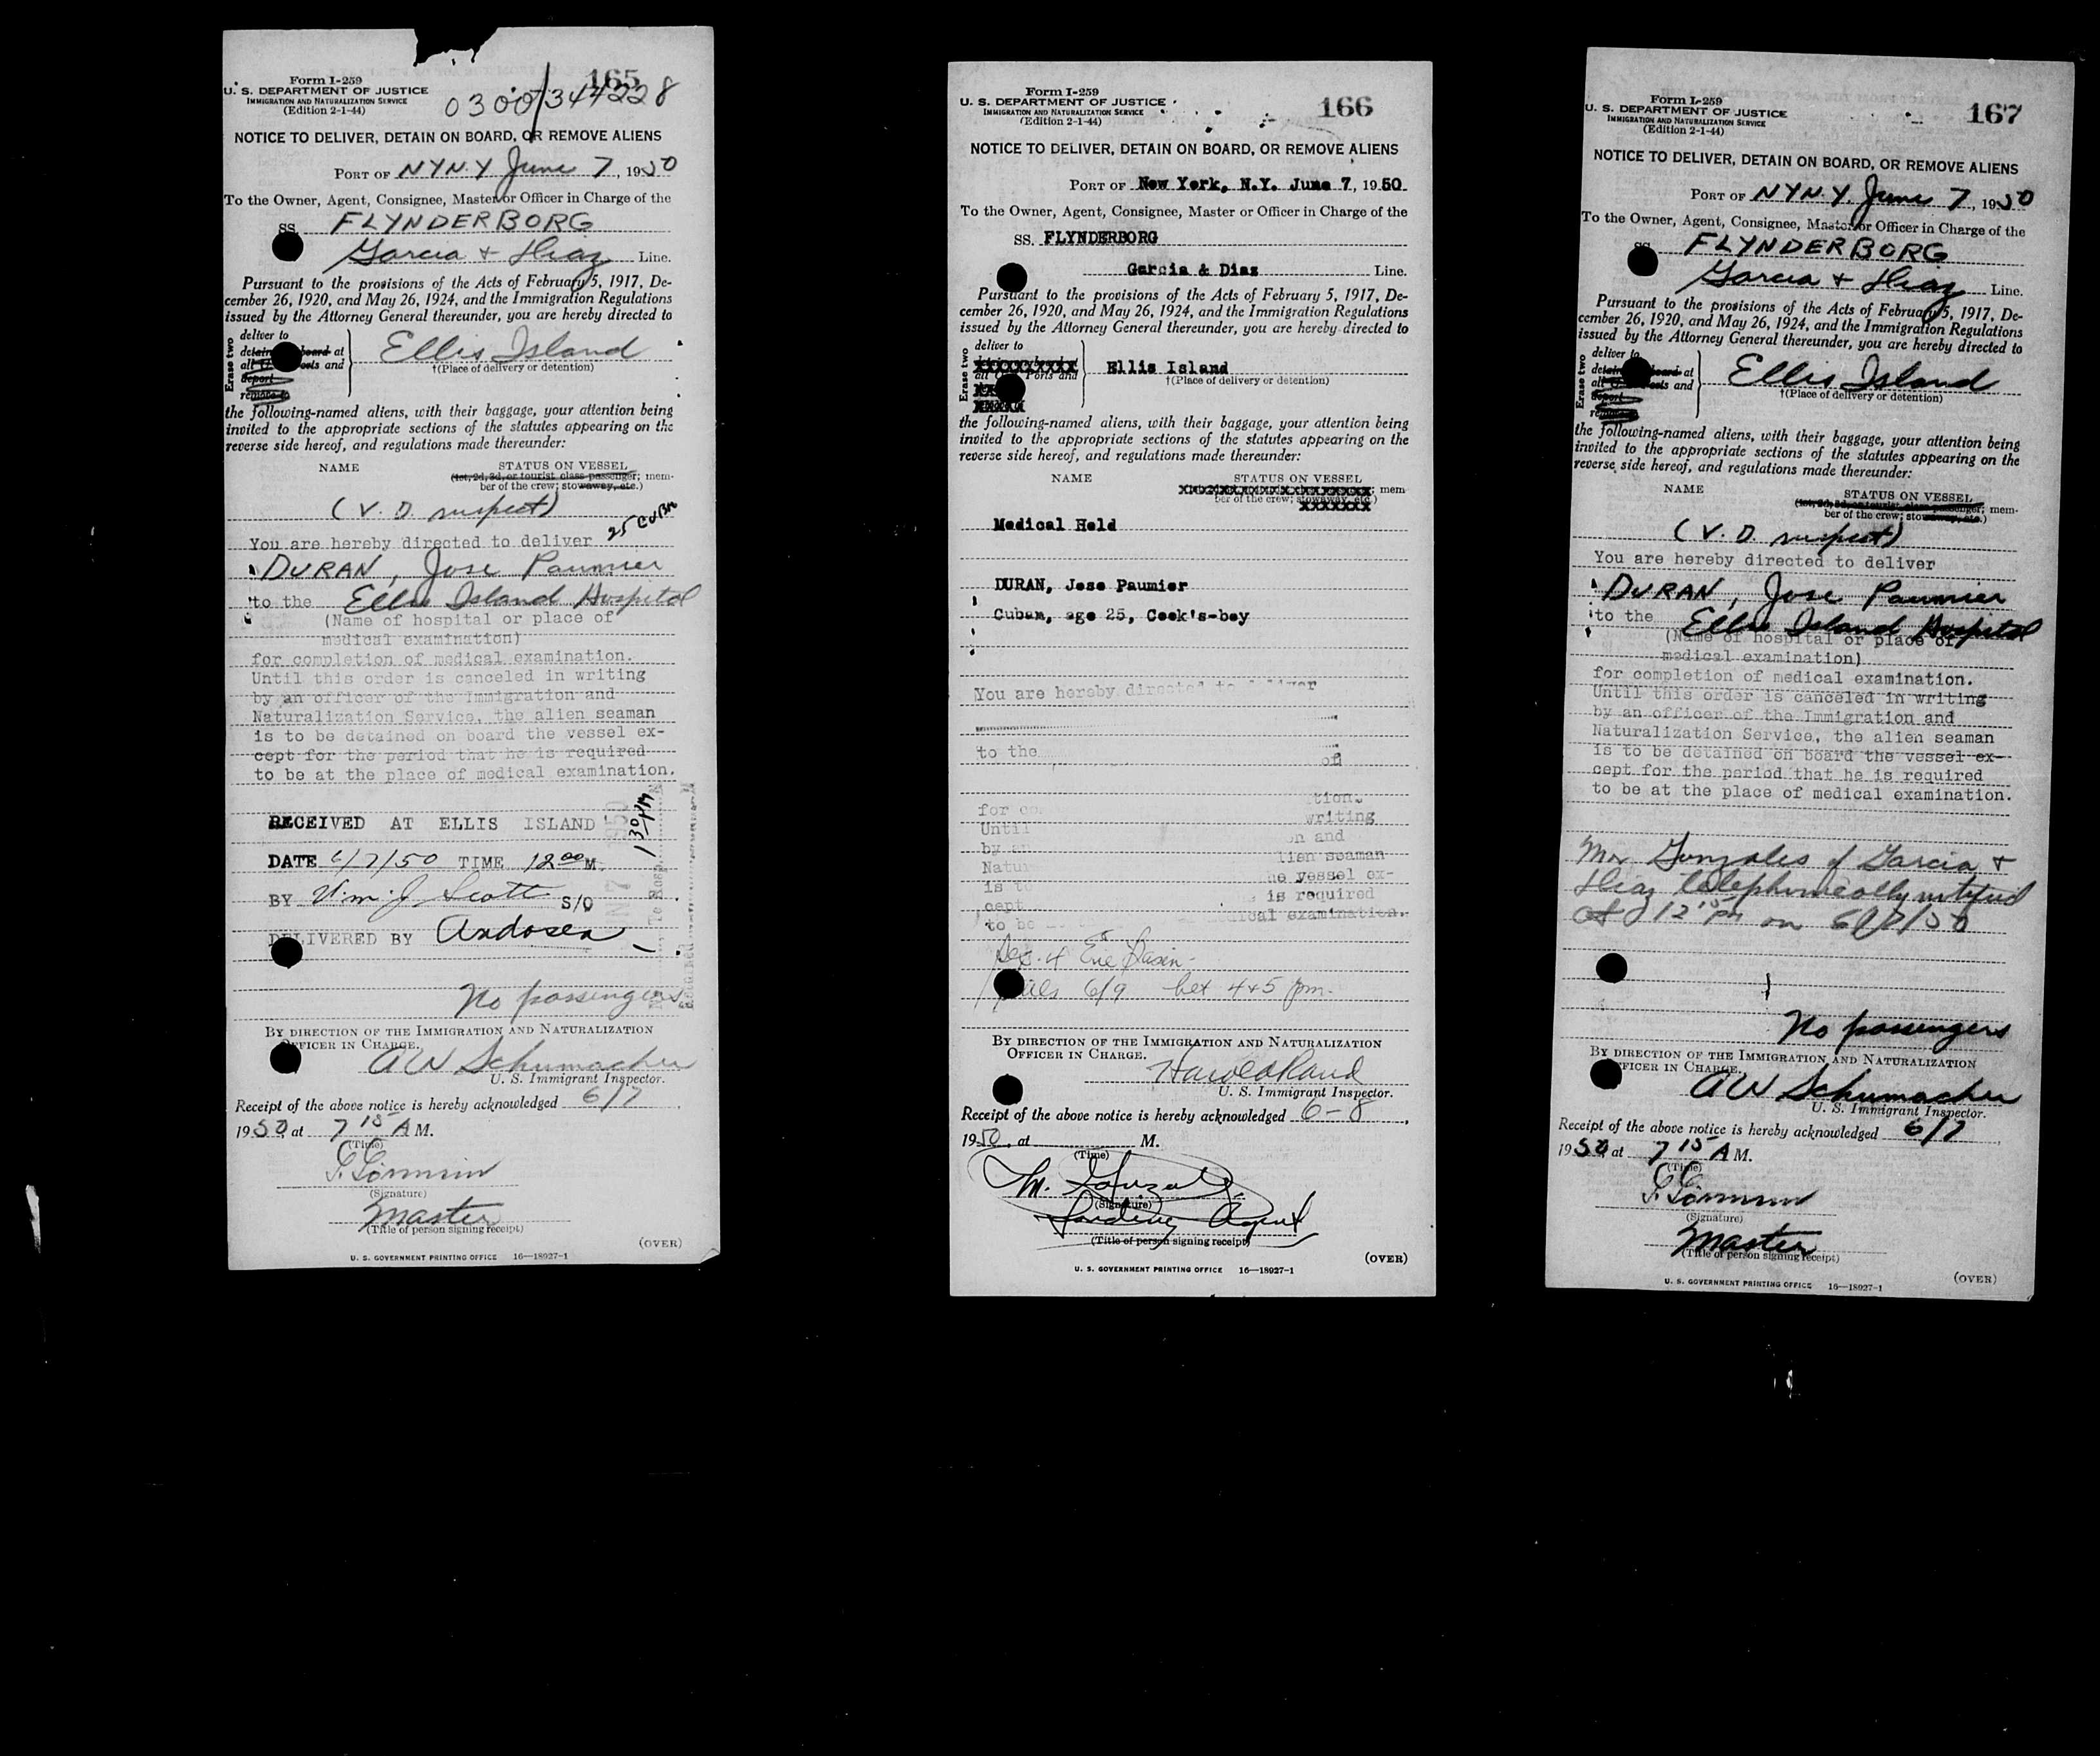 165
Form I-259
U. S. DEPARTMENT OF JUSTICE
IMMIGRATION AND NATURALIZATION SERVICE
(Edition 2-1-44)
0300/344228
NOTICE TO DELIVER, DETAIN ON BOARD, OR REMOVE ALIENS
PORT OF NYN.Y June 7, 1950
To the Owner, Agent, Consignee, Master or Officer in Charge of the
SS. FLYNDERBORG
Garcia + Diaz Line.
Pursuant to the provisions of the Acts of February 5, 1917, De-
cember 26, 1920, and May 26, 1924, and the Immigration Regulations
issued by the Attorney General thereunder, you are hereby directed to
Erase two
deliver to
detain board at
all ports and
deport
Ellis Island
†(Place of delivery or detention)
the following-named aliens, with their baggage, your attention being
invited to the appropriate sections of the statutes appearing on the
reverse side hereof, and regulations made thereunder:
NAME STATUS ON VESSEL
(1st, 2d, 3d, or tourist class passenger; mem-
ber of the crew; stowaway, etc.)
(V. D. suspect)
25 CUBN
You are hereby directed to deliver
DURAN, Jose Paumier
to the Ellis Island Hospital
(Name of hospital or place of
medical examination)
for completion of medical examination.
Until this order is canceled in writing
by an officer of the Immigration and
Naturalization Service, the alien seaman
is to be detained on board the vessel ex-
cept for the period that he is required
to be at the place of medical examination.
RECEIVED AT ELLIS ISLAND
DATE 6/7/50 TIME 12 00 M.
BY Wm. J. Scott S/O
DELIVERED BY
No passengers
BY DIRECTION OF THE IMMIGRATION AND NATURALIZATION
OFFICER IN CHARGE.
AW Schumacher
U. S. Immigrant Inspector.
Receipt of the above notice is hereby acknowledged 6/7,
1950, at 7 15 A M.
(Time)
(Signature)
Master
(Title of person signing receipt)
(OVER)
U. S. GOVERNMENT PRINTING OFFICE 16—18927-1
166
Form I-259
U. S. DEPARTMENT OF JUSTICE
IMMIGRATION AND NATURALIZATION SERVICE
(Edition 2-1-44)
NOTICE TO DELIVER, DETAIN ON BOARD, OR REMOVE ALIENS
PORT OF New York, N.Y. June 7, 1950
To the Owner, Agent, Consignee, Master or Officer in Charge of the
SS. FLYNDERBORG
Garcia & Diaz Line.
Pursuant to the provisions of the Acts of February 5, 1917, De-
cember 26, 1920, and May 26, 1924, and the Immigration Regulations
issued by the Attorney General thereunder, you are hereby directed to
Erase two
deliver to
all Ports and
Ellis Island
†(Place of delivery or detention)
the following-named aliens, with their baggage, your attention being
invited to the appropriate sections of the statutes appearing on the
reverse side hereof, and regulations made thereunder:
NAME STATUS ON VESSEL
; mem
ber of the crew; stowaway, etc.)
Medical Held
DURAN, Jose Paumier
Cuban, age 25, Cook's-boy
You are hereby directed to deliver
to the of
for co tion.
Until writing
by an n and
Natur lien seaman
is to he vessel ex-
cept is required
to be ical examination.
Erie Basin-
6/9 bet 4+5 pm.
BY DIRECTION OF THE IMMIGRATION AND NATURALIZATION
OFFICER IN CHARGE.
Harold Rand
U. S. Immigrant Inspector.
Receipt of the above notice is hereby acknowledged 6-8,
1950, at M.
(Time)
M. Gonzales
(Signature)
Landing Agent
(Title of person signing receipt)
(OVER)
U. S. GOVERNMENT PRINTING OFFICE 16—18927-1
167
Form I-259
U. S. DEPARTMENT OF JUSTICE
IMMIGRATION AND NATURALIZATION SERVICE
(Edition 2-1-44)
NOTICE TO DELIVER, DETAIN ON BOARD, OR REMOVE ALIENS
PORT OF NYN.Y. June 7, 1950
To the Owner, Agent, Consignee, Master or Officer in Charge of the
SS. FLYNDERBORG
Garcia + Diaz Line.
Pursuant to the provisions of the Acts of February 5, 1917, De-
cember 26, 1920, and May 26, 1924, and the Immigration Regulations
issued by the Attorney General thereunder, you are hereby directed to
Erase two
deliver to
detain board at
all ports and
deport
Ellis Island
†(Place of delivery or detention)
the following-named aliens, with their baggage, your attention being
invited to the appropriate sections of the statutes appearing on the
reverse side hereof, and regulations made thereunder:
NAME STATUS ON VESSEL
(1st, 2d, 3d, or tourist class passenger; mem-
ber of the crew; stowaway, etc.)
(V. D. suspect)
You are hereby directed to deliver
DURAN, Jose Paumier
to the Ellis Island Hospital
(Name of hospital or place of
medical examination)
for completion of medical examination.
Until this order is canceled in writing
by an officer of the Immigration and
Naturalization Service, the alien seaman
is to be detained on board the vessel ex-
cept for the period that he is required
to be at the place of medical examination.
Mr Gonzales of Garcia +
Diaz telephonically notified
at 12 15 PM on 6/7/50
No passengers
BY DIRECTION OF THE IMMIGRATION AND NATURALIZATION
OFFICER IN CHARGE.
AW Schumacher
U. S. Immigrant Inspector.
Receipt of the above notice is hereby acknowledged 6/7,
1950, at 7 15 A M.
(Time)
(Signature)
Master
(Title of person signing receipt)
(OVER)
U. S. GOVERNMENT PRINTING OFFICE 16—18927-1